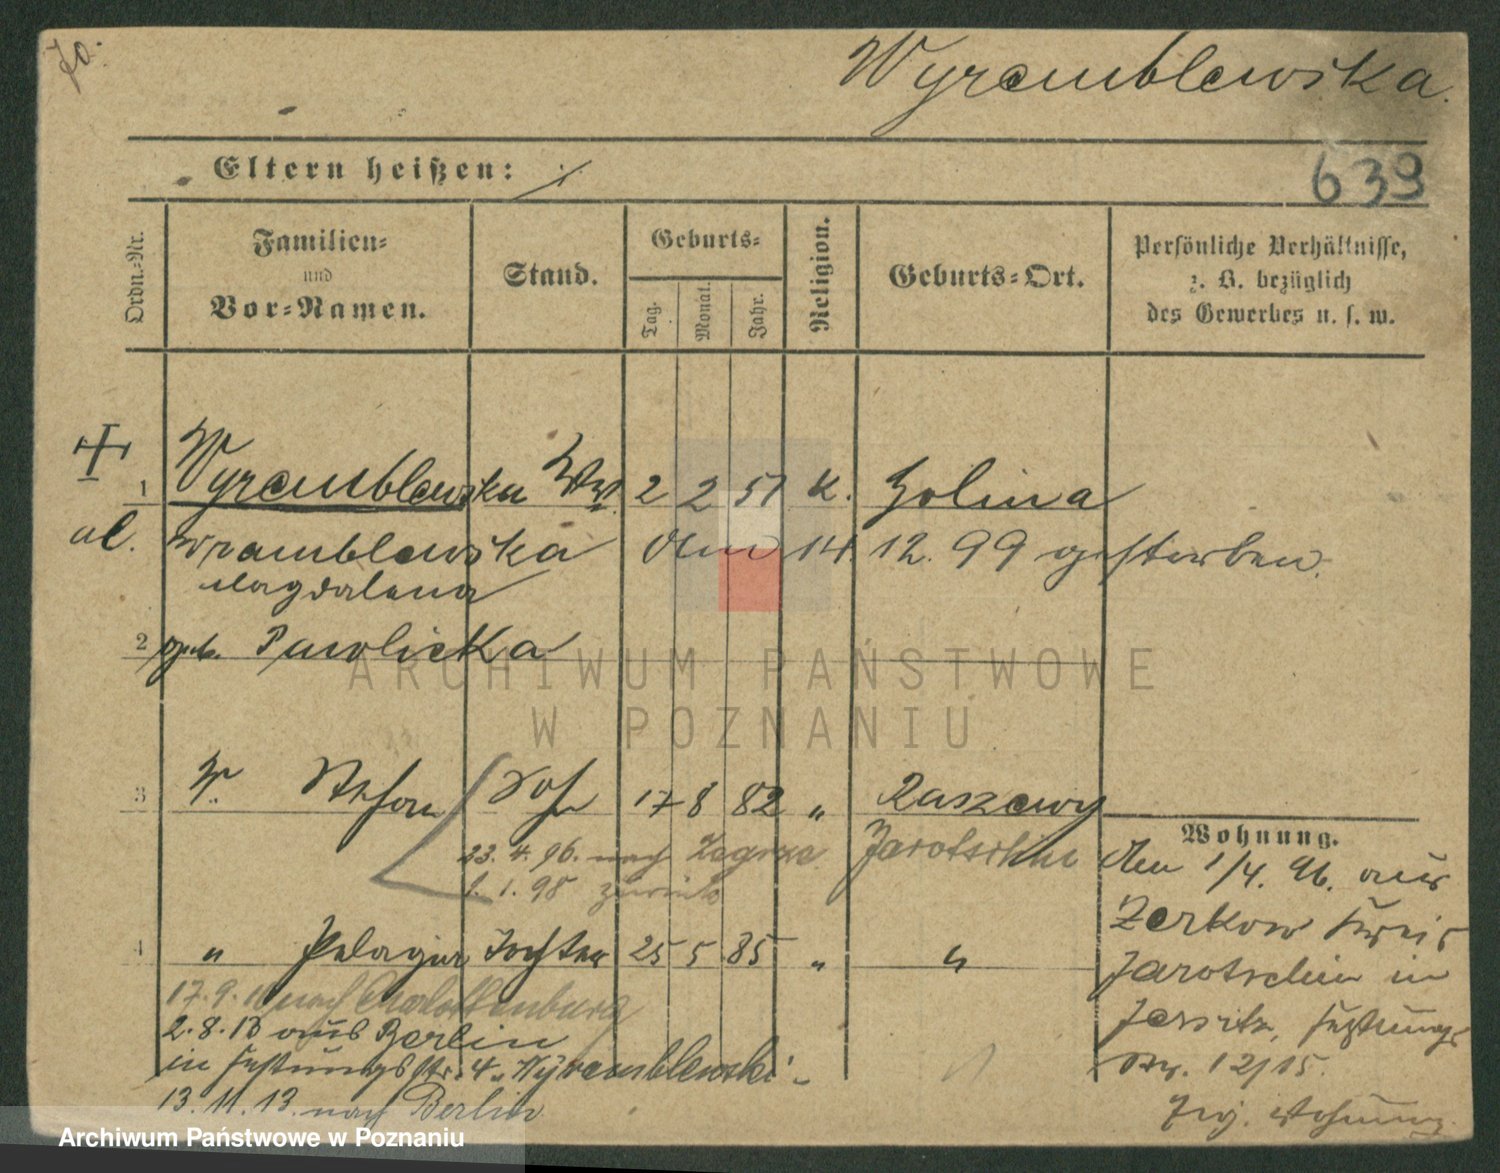 Wyremblewska.
Eltern heißen:
639
Ordn.-Nr.
Familien-
und
Vor-Namen.
Stand.
Geburts-
Tag.
Monat.
Jahr.
Religion.
Geburts-Ort.
Persönliche Verhältnisse,
z. B. bezüglich
des Gewerbes u. s. w.
1 Wyremblewska Ww. 2 2 51 K. Golina
al. Wramblewska den 14. 12. 99 gestorben.
Magdalena
2 geb. Pawlicka
ARCHIWUM PAŃSTWOWE
W POZNANIU
3 W. Stefan Sohn 17 8 82 " Raszewy
Jarotschin
23. 4. 96. nach Zegrze
1. 1. 98 zurück
4 " Pelagia Tochter 25 5 85 " "
17. 9. nach Charlottenburg
2. 8. 13 aus Berlin
in Festungsstr. 4. Wyremblewski.
13. 11. 13. nach Berlin
Wohnung.
Den 1/4. 96. aus
Zerkow Kreis
Jarotschin in
Jersitz, Festungs
str. 12/15.
Wohnung
Archiwum Państwowe w Poznaniu